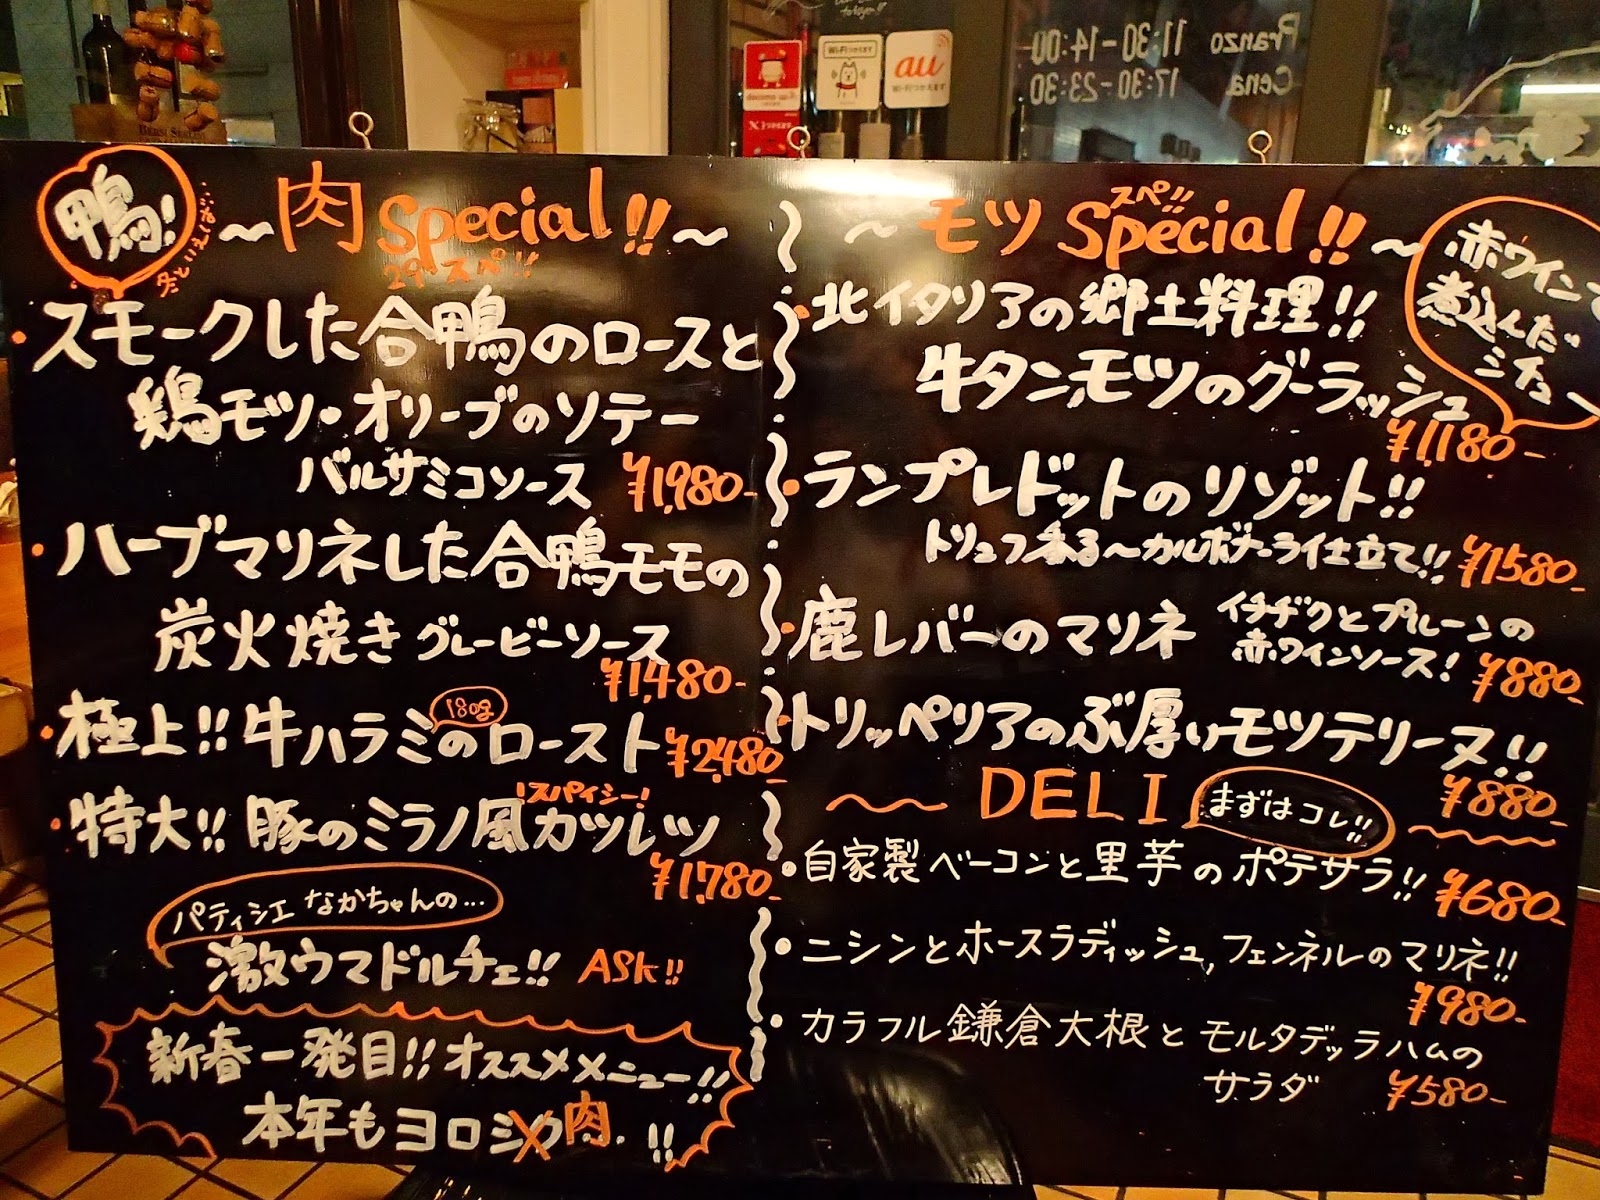 Pranzo 11:30-14:00
Cena 17:30-23:30
Wi-Fi
au
鴨!
冬といえば…
~肉Special!!~
29スペ!!
・スモークした合鴨のロースと
鶏モツ・オリーブのソテー
バルサミコソース ¥1,980-
・ハーブマリネした合鴨モモの
炭火焼きグレービーソース
¥1,480-
180g
・極上!!牛ハラミのロースト ¥2,480-
!スパイシー!
・特大!!豚のミラノ風カツレツ
¥1,780-
パティシエ なかちゃんの…
激ウマドルチェ!! ASK!!
新春一発目!!オススメメニュー!!
本年もヨロシク肉!!
スペ!!
~モツSpecial!!~
赤ワインで
煮込んだ
シチュー
・北イタリアの郷土料理!!
牛タン,モツのグーラッシュ
¥1,180-
・ランプレドットのリゾット!!
トリュフ香る~カルボナーラ仕立て!! ¥1580-
・鹿レバーのマリネ イチヂクとプルーンの
赤ワインソース! ¥880-
・トリッペリアのぶ厚いモツテリーヌ!!
¥880-
~~DELI~~
まずはコレ!!
・自家製ベーコンと里芋のポテサラ!! ¥680-
・ニシンとホースラディッシュ,フェンネルのマリネ!!
¥980-
・カラフル鎌倉大根とモルタデッラハムの
サラダ ¥580-